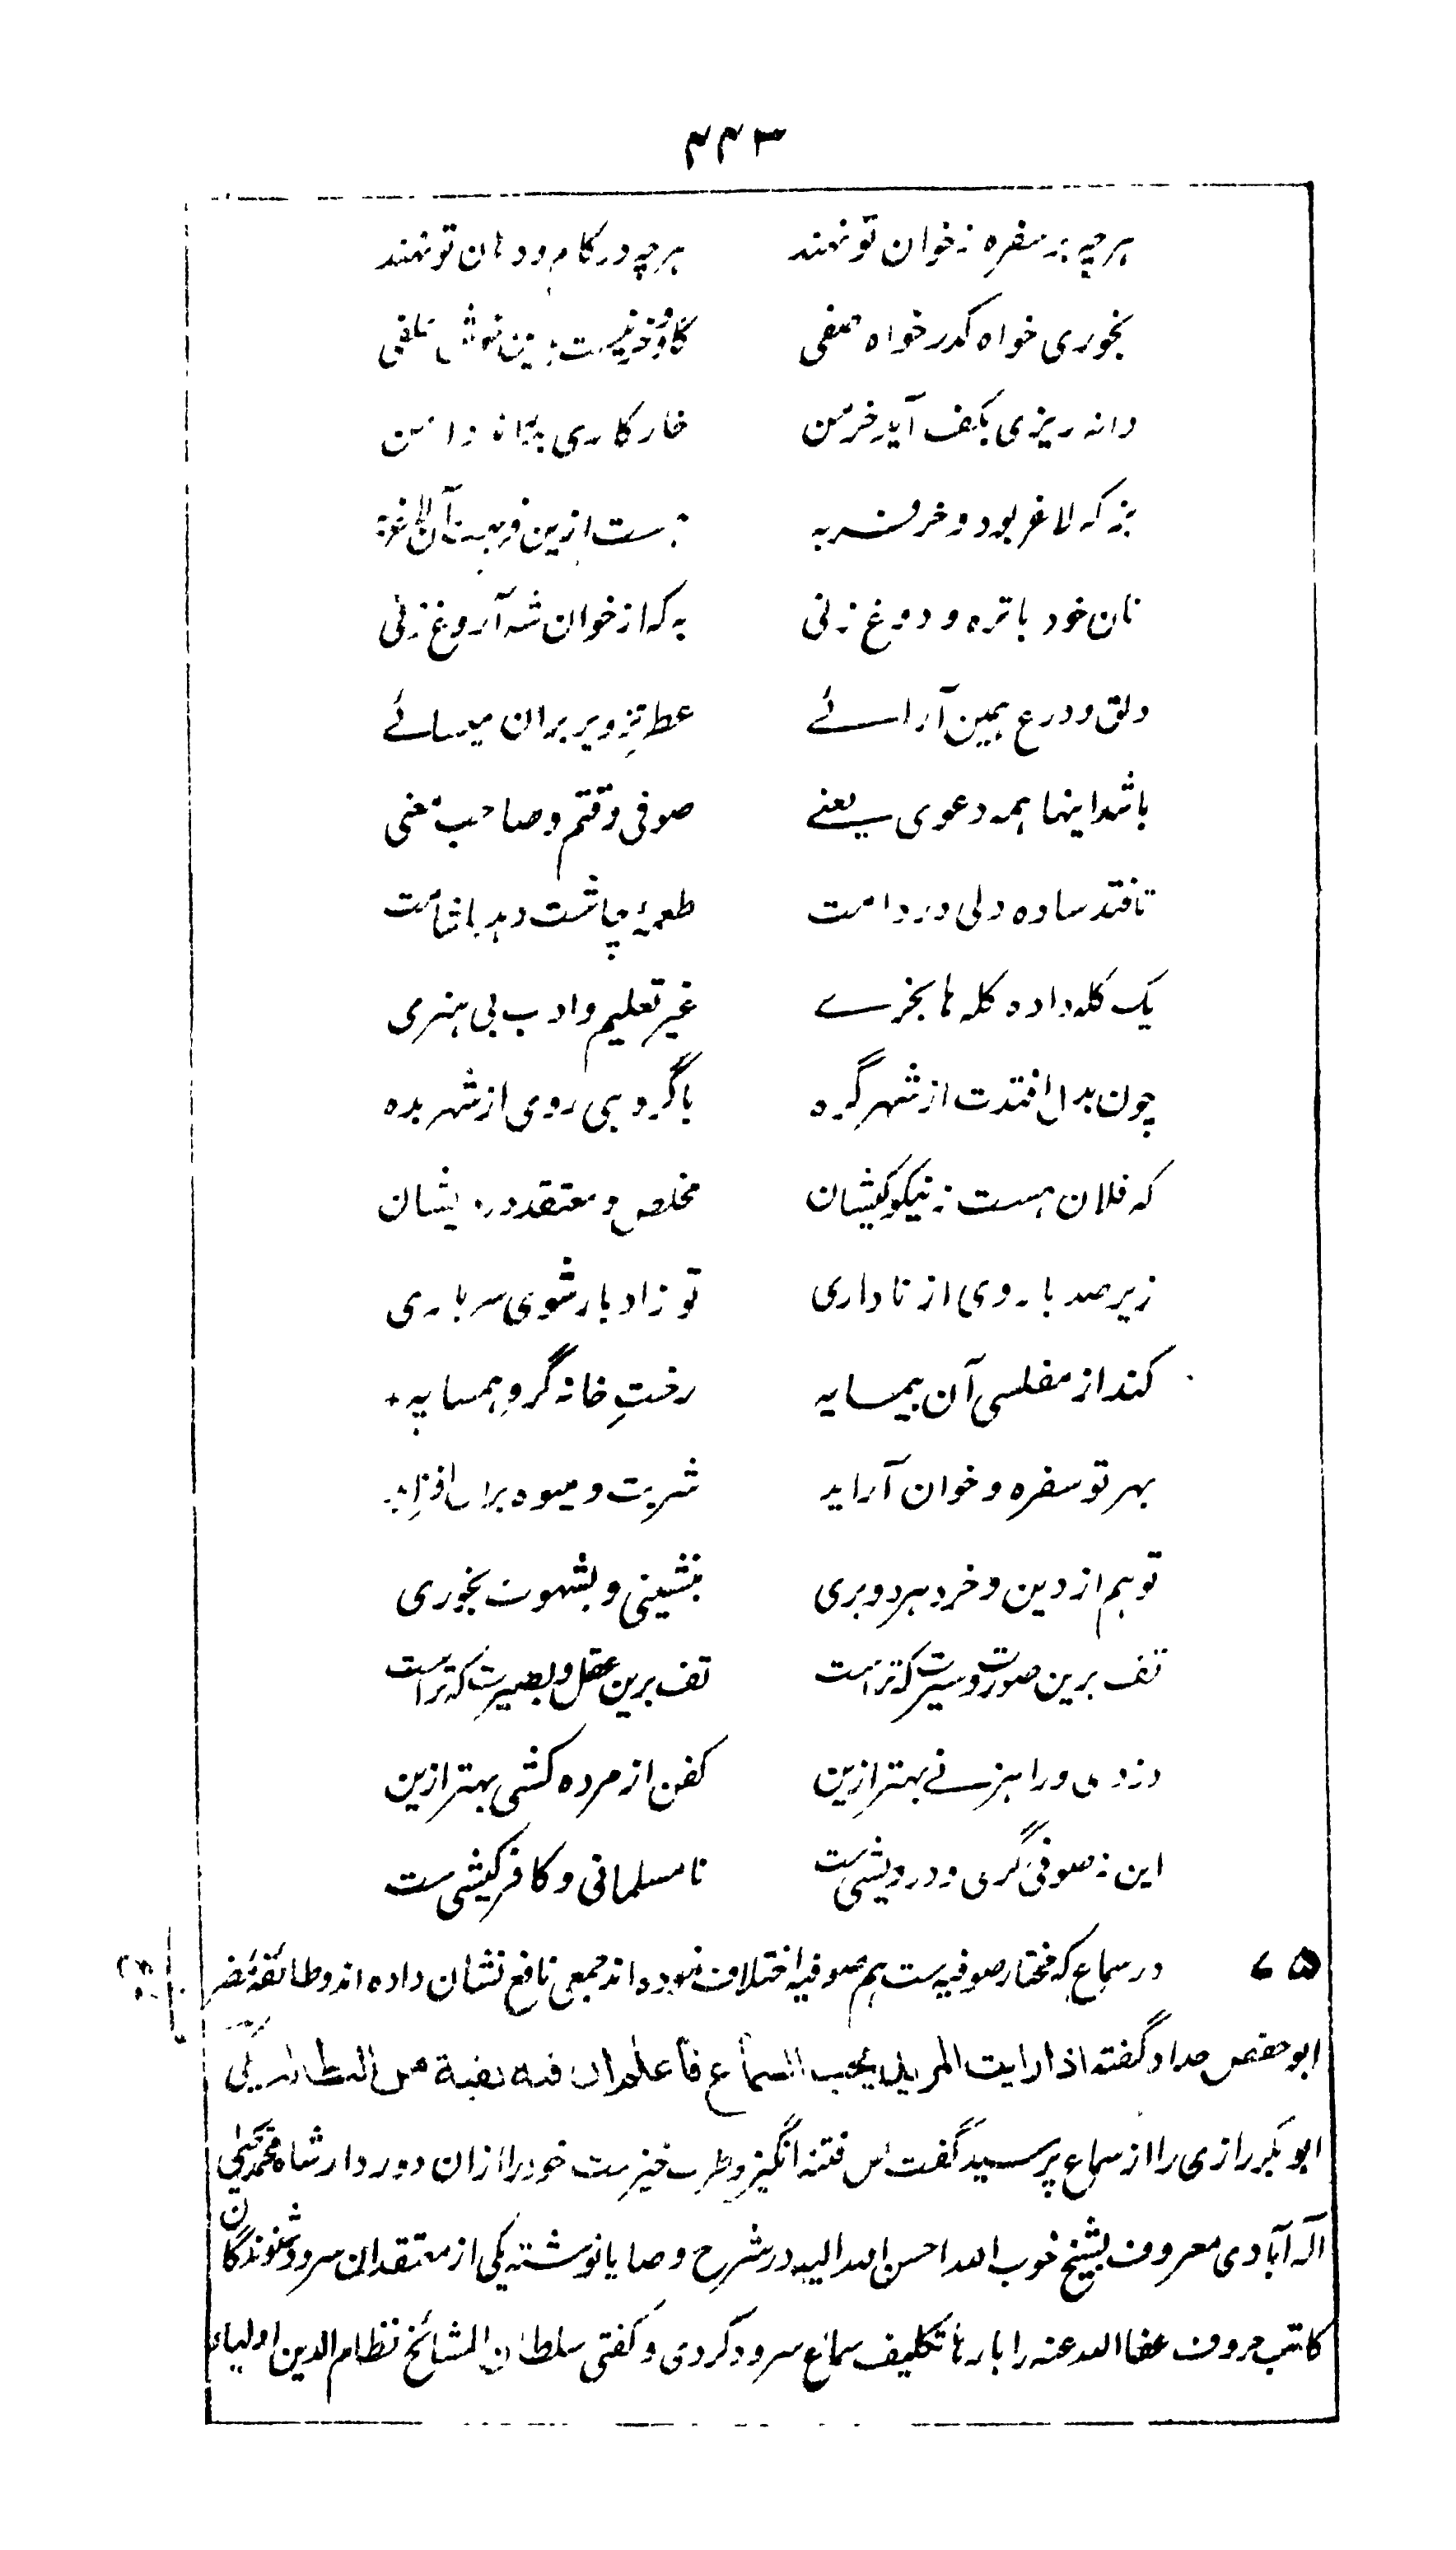 ۴۴۳
هرچه بر سفره و خوان تو نهند هرچه در کام و دهان تو نهند
بخوری خواه کدر خواه صفی گاو و خر نیست بدین خوش علفی
دانه ریزی بکف آید خرمن خار کاری بدراند دامن
بزکه لاغر بود و خر فربه بهست ازین فربهیت آن لاغر به
نان خود با تره و دوغ زنی به که از خوان شه آروغ زنی
دلق و درع بهمین آرائے عطر تزویر بران میسائے
باشد اینها همه دعوی یعنے صوفی وقتم و صاحب معنی
تا فتد ساده دلی در دامت طعمه چاشت دهد یا شامت
یک کله داده کله ها بخرے غیر تعلیم و ادب بی هنری
چون بدل افتدت از شهر گره با گروهی روی از شهر بده
که فلان هست ز نیکو کیشان مخلص و معتقد درویشان
زیر صد بار وی از ناداری تو ز ادبار شوی سرباری
کند از مفلسی آن بیمایه رخت خانه گرو همسایه
بهر تو سفره و خوان آراید شربت و میوه بران افزاید
تو هم از دین و خرد هر دو بری بنشینی و بشهوت بخوری
تف برین صورت و سیرت که تراست تف برین عقل و بصیرت که تراست
دزدی و راهزنے بهتر ازین کفن از مرده کشی بهتر ازین
این نه صوفی گری و درویشی ست نامسلمانی و کافر کیشی ست
۷۵ در سماع که مختار صوفیه ست هم صوفیه اختلاف نموده اند جمعی نافع نشان داده اند و طائفه مضر
ابو حفص حداد گفته اذا رایت المرید یحب السماع فاعلم ان فیه بقیة من البطالة یکی
ابوبکر رازی را از سماع پرسید گفت بس فتنه انگیز و طرب خیز ست خود را ازان دور دار شاه محمد یحیی
اله آبادی معروف بشیخ خوب الله احسن الله الیه در شرح وصایا نوشته یکی از معتقدان سرود شنوندگان
کاتب حروف عفا الله عنه را بارها تکلیف سماع سرود کردی و گفتی سلطان المشائخ نظام الدین اولیاء